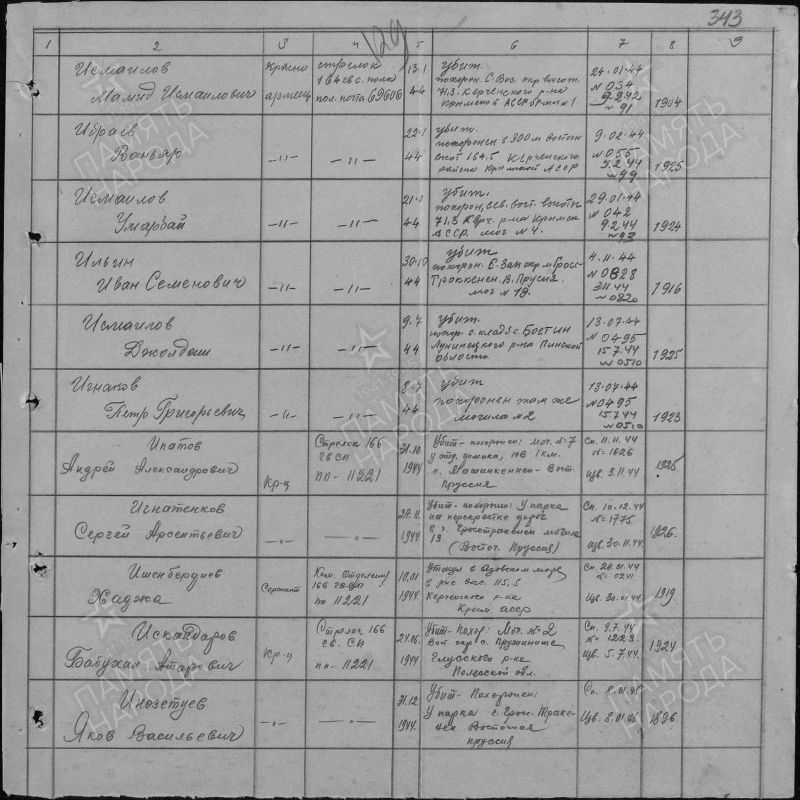 343
1 2 3 4 5 6 7 8 9
Исмаилов
Мамид Исмаилович
красно
армеец
стрелок
164 гв с. полк
пол. почта 69606
13.1
44
убит.
похорон. С. Вос. окр. высот.
71,3 Керченского р-на
Крымской АССР
24.01.44
N 034
9.2.42
N 91
1904
Ибраев
Ваньяр
-"-
-"-
22.1
44
убит.
похоронен в 300 м восточн
высот 164.5 Керченского
района Крымской АССР
9.02.44
N 055
7.2.44
N 99
1925
Исмаилов
Умарбай
-"-
-"-
21.1
44
убит.
похорон. ссв. вост. высоты
71,3 Керч. р-на Крымск
АССР. мог N 4.
29.01.44
N 042
9.2.44
N 93
1924
Ильин
Иван Семенович
-"-
-"-
30.10
44
убит
похорон. С. Зап окр м Гросс-
Траккенен. В. Прусия.
мог N 19.
4.11.44
N 0828
3.11.44
N 0820
1916
Исмаилов
Джолдаш
-"-
-"-
9.7
44
убит.
похор. с. клад. с. Бостин
Лунинецкого р-на Пинской
области.
13.07.44
N 0495
15.7.44
N 0510
1925
Игнаков
Петр Григорьевич
-"-
-"-
8.7
44
убит
похоронен там же
могила N 2
13.07.44
N 0495
15.7.44
N 0510
1923
Ипатов
Андрей Александрович
Кр-ц
Стрелок 166
ГвСП
пп - 11221
31.10.
1944
Убит - похоронен: Мог. N=7
у отд. домика, юв 1 км.
с. - Вост.
Пруссия
Сп. 11.11.44
N= 1626
Изв. 3.11.44
1925
Игнатенков
Сергей Арсентьевич
-"-
-"-
29.11.
1944.
Убит - похоронен: У парка
на перекрестке дорог
в г. Гросстракенен могила
13. (Восточ. Пруссия)
Сп. 10.12.44
N= 1775
Изв. 30.11.44
1926.
Ишенбердиев
Хаджа
Сержант
Ком. Отделения
166 гв сп
пп 11221
10.01
1944.
Утонул в Азовском море
в р-не выс. 115,5
Керченского р-на
Крым. АССР
Сп. 29.01.44
N= 0211
Изв. 30.01.44
1919.
Искандаров
Бабухан Атарович
Кр-ц
Стрелок 166
гв. СП
пп - 11221
24.06.
1944
Убит - Похор: Мог. N=2
Вост. окр. с. Пружинище
Глусского р-на
Полесской обл.
Сп. 9.7.44
N= 1223
Изв. 5.7.44
1924
Инозетуев
Яков Васильевич
-"-
-"-
31.12.
1944.
Убит - Похоронен:
У парка с. Грос-Трака-
нен Восточная
пруссия
Сп. 8.01.45
Изв. 8.01.45
1896
ПАМЯТЬ НАРОДА